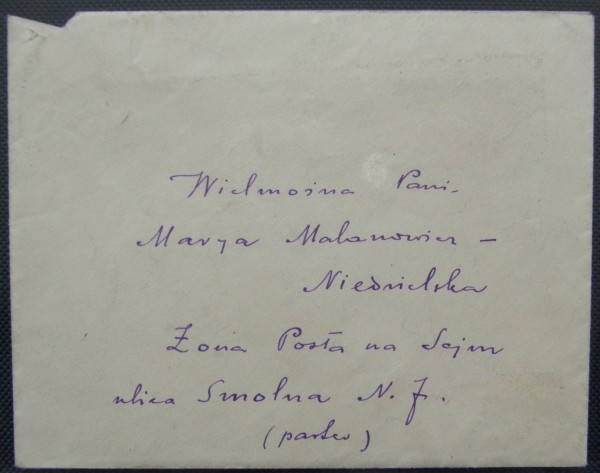 Wielmożna Pani.
Marya Malanowicz –
Niedzielska
Żona Posła na Sejm
ulica Smolna N. 7.
(parter)